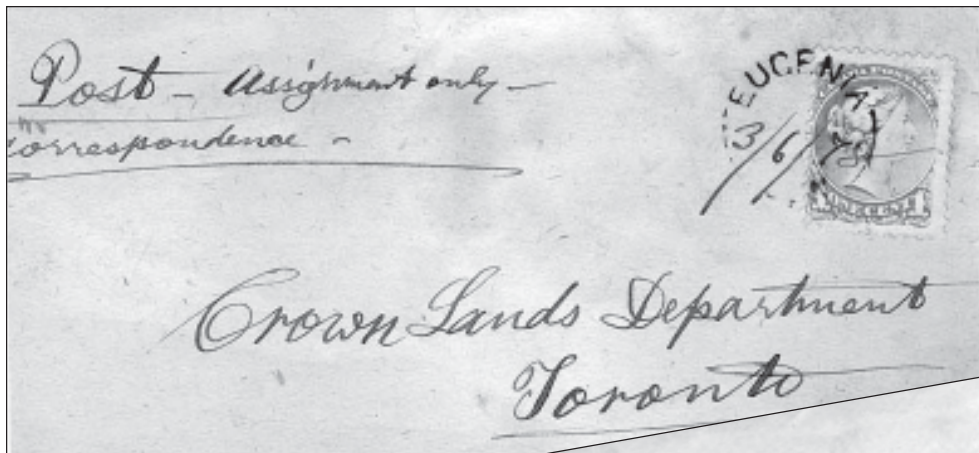 Post – Assignment only –
Correspondence –
EUGENIA
3/6/7
Crown Lands Department
Toronto